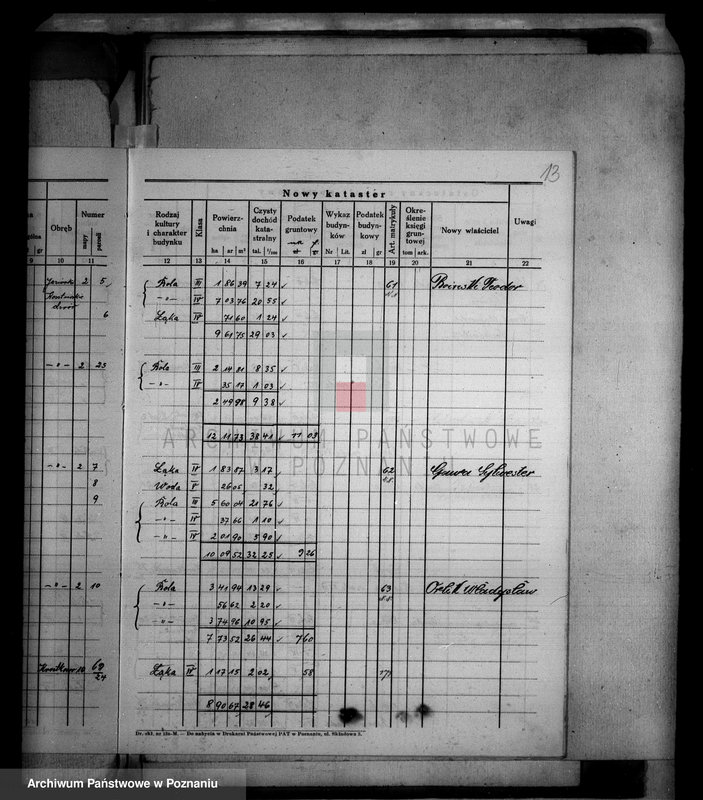 13
Nowy kataster
Obręb Numer
mapy parceli
Rodzaj kultury i charakter budynku
Klasa
Powierzchnia
ha ar m²
Czysty dochód katastralny
tal. 1/100
Podatek gruntowy
Wykaz budynków
Nr Lit.
Podatek budynkowy
zł gr
Art. matrykuły
Określenie księgi gruntowej
tom ark.
Nowy właściciel
Uwagi
9 10 11 12 13 14 15 16 17 18 19 20 21 22
2 5 Rola III 1 86 39 7 24 61
-"- IV 7 03 76 20 55
6 Łąka IV 71 60 1 24
9 61 75 29 03
-"- 2 23 Rola III 2 14 81 8 35
-"- IV 35 17 1 03
2 49 98 9 38
12 11 73 38 41 11 03
ARCHIWUM PAŃSTWOWE
POZNAŃ
-"- 2 7 Łąka IV 1 83 87 3 17 62 Sylwester
8 Woda V 26 05 32
9 Rola III 5 60 04 21 76
-"- IV 37 66 1 10
-"- IV 2 01 90 5 90
10 09 52 32 25 9 26
-"- 2 10 Rola 3 41 94 13 29 63 Władysław
-"- 56 62 2 20
-"- 3 74 96 10 95
7 73 52 26 44 7 60
69/24 Łąka IV 1 17 15 2 02 58
8 90 67 28 46
Do nabycia w Drukarni Państwowej PAT w Poznaniu, ul. Składowa 3.
Archiwum Państwowe w Poznaniu